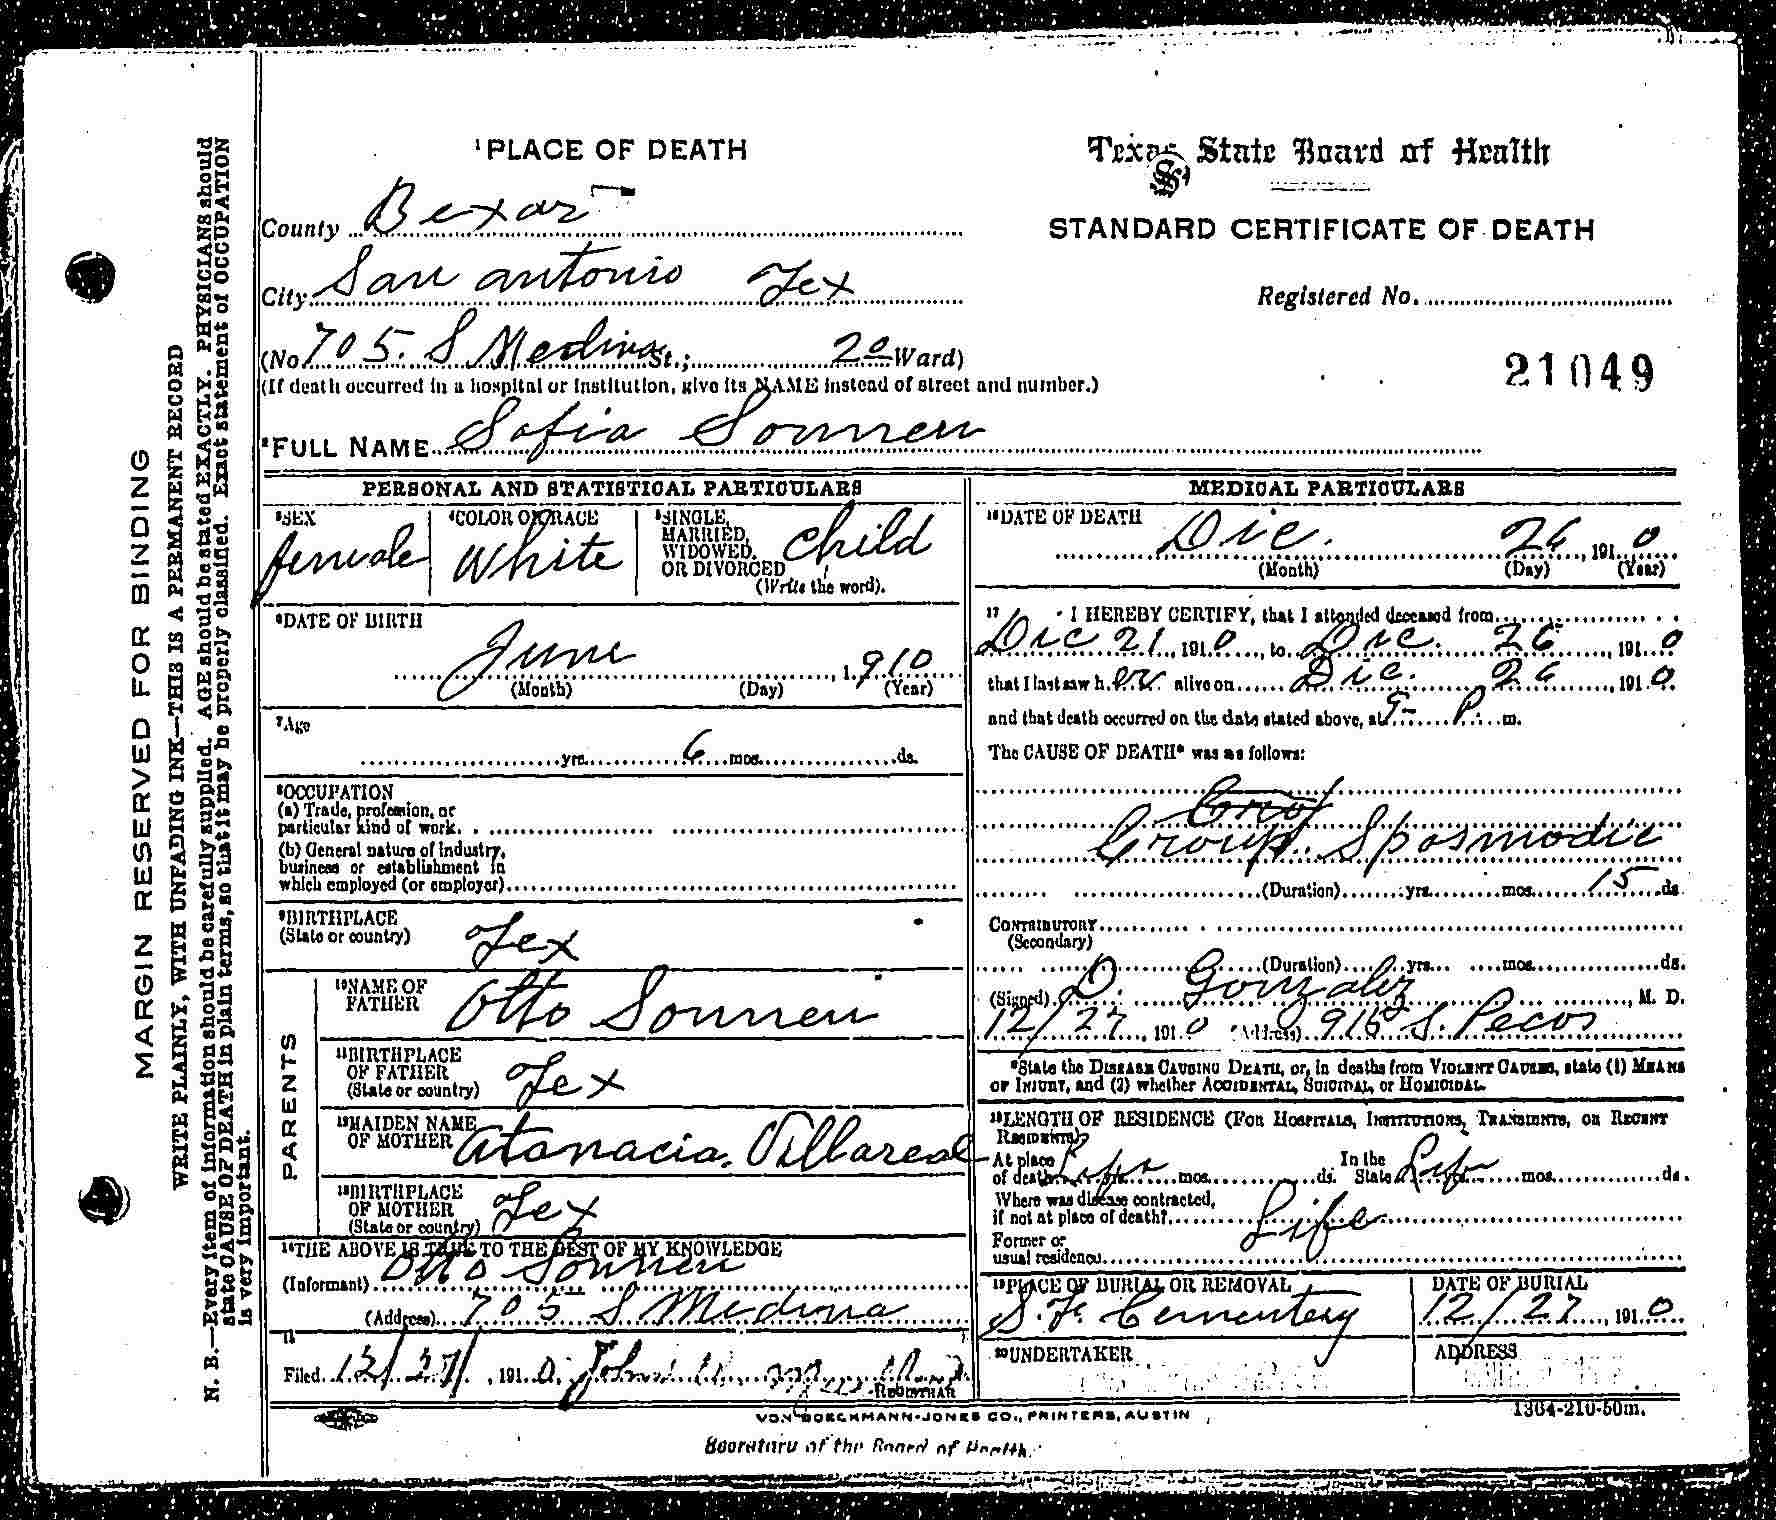 MARGIN RESERVED FOR BINDING
WRITE PLAINLY, WITH UNFADING INK—THIS IS A PERMANENT RECORD
N. B.—Every item of information should be carefully supplied. AGE should be stated EXACTLY. PHYSICIANS should
state CAUSE OF DEATH in plain terms, so that it may be properly classified. Exact statement of OCCUPATION
is very important.
1 PLACE OF DEATH
County Bexar
City San Antonio Tex
(No 705. S Medina St.; 20 Ward)
(If death occurred in a hospital or institution, give its NAME instead of street and number.)
Texas State Board of Health
STANDARD CERTIFICATE OF DEATH
Registered No.
21049
2 FULL NAME Sofia Sonnen
PERSONAL AND STATISTICAL PARTICULARS
3 SEX
female
4 COLOR OR RACE
White
5 SINGLE,
MARRIED,
WIDOWED,
OR DIVORCED
(Write the word).
child
6 DATE OF BIRTH
June 1910
(Month) (Day) (Year)
7 Age
yrs. 6 mos. ds.
8 OCCUPATION
(a) Trade, profession, or
particular kind of work.
(b) General nature of industry,
business or establishment in
which employed (or employer)
9 BIRTHPLACE
(State or country) Tex
PARENTS
10 NAME OF
FATHER Otto Sonnen
11 BIRTHPLACE
OF FATHER
(State or country) Tex
12 MAIDEN NAME
OF MOTHER Atanacia Villareal
13 BIRTHPLACE
OF MOTHER
(State or country) Tex
14 THE ABOVE IS TRUE TO THE BEST OF MY KNOWLEDGE
(Informant) Otto Sonnen
(Address) 705 S Medina
Filed 12/27/, 1910. John
REGISTRAR
MEDICAL PARTICULARS
16 DATE OF DEATH
Dic. 26, 1910
(Month) (Day) (Year)
17 I HEREBY CERTIFY, that I attended deceased from
Dic 21, 1910, to Dic. 26, 1910
that I last saw her alive on Dic. 26, 1910
and that death occurred on the date stated above, at P. m.
The CAUSE OF DEATH* was as follows:
Croup Spasmodic
(Duration) yrs. mos. 15 ds
CONTRIBUTORY
(Secondary)
(Duration) yrs. mos. ds.
(Signed) D. Gonzalez, M. D.
12/27, 1910 (Address) 915 S. Pecos
*State the DISEASE CAUSING DEATH, or, in deaths from VIOLENT CAUSES, state (1) MEANS
OF INJURY, and (2) whether ACCIDENTAL, SUICIDAL, or HOMICIDAL.
18 LENGTH OF RESIDENCE (FOR HOSPITALS, INSTITUTIONS, TRANSIENTS, OR RECENT
RESIDENTS)
At place
of death Life mos. ds. In the
State Life mos. ds.
Where was disease contracted,
if not at place of death? Life
Former or
usual residence
19 PLACE OF BURIAL OR REMOVAL
S. F. Cementery
DATE OF BURIAL
12/27, 1910
20 UNDERTAKER
ADDRESS
VON BOECKMANN-JONES CO., PRINTERS, AUSTIN
1364-210-50m.
Secretary of the Board of Health.